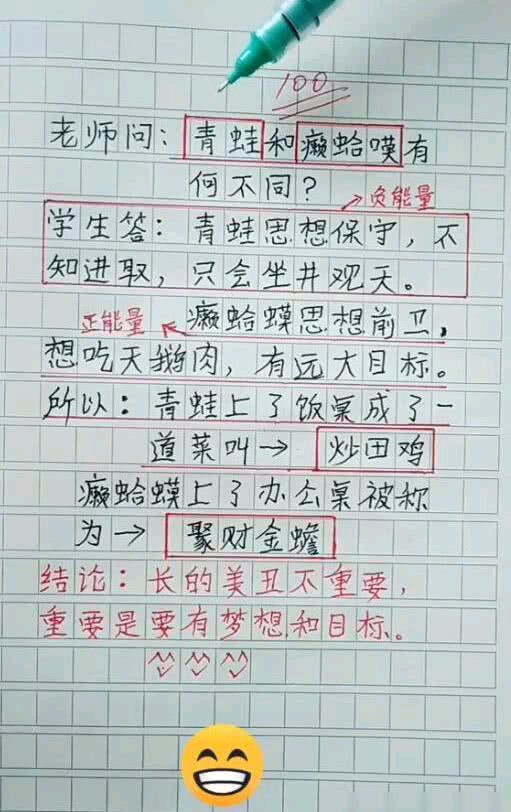 100
老师问：青蛙和癞蛤嘆有
何不同？
负能量
学生答：青蛙思想保守，不
知进取，只会坐井观天。
正能量 癞蛤蟆思想前卫，
想吃天鹅肉，有远大目标。
所以：青蛙上了饭桌成了一
道菜叫→炒田鸡
癞蛤蟆上了办公桌被称
为→聚财金蟾
结论：长的美丑不重要，
重要是要有梦想和目标。